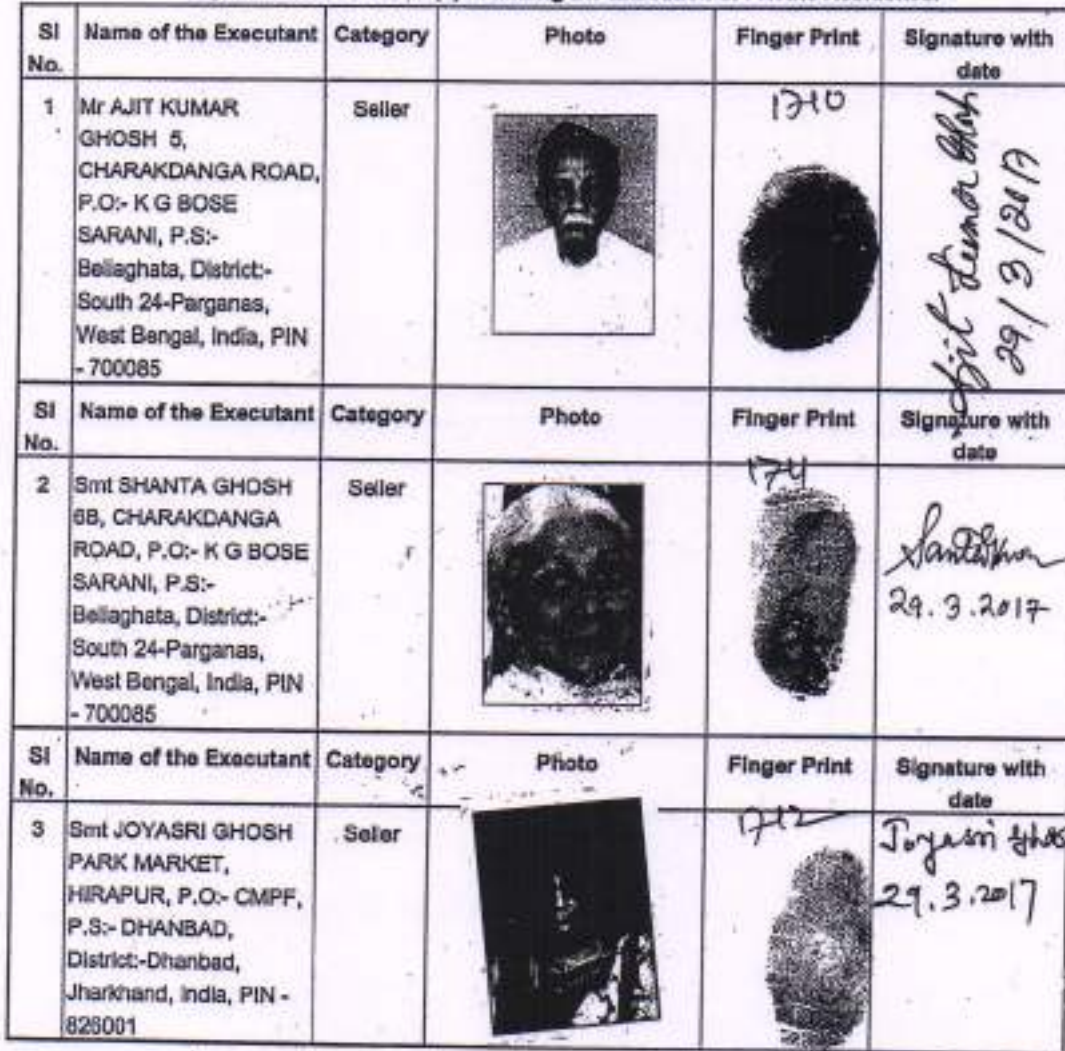 Sl No. Name of the Executant Category Photo Finger Print Signature with date
1 Mr AJIT KUMAR
GHOSH 5,
CHARAKDANGA ROAD,
P.O:- K G BOSE
SARANI, P.S:-
Beliaghata, District:-
South 24-Parganas,
West Bengal, India, PIN
- 700085
Seller
1710
Ajit Kumar Ghosh
29/3/2017
Sl No. Name of the Executant Category Photo Finger Print Signature with date
2 Smt SHANTA GHOSH
6B, CHARAKDANGA
ROAD, P.O:- K G BOSE
SARANI, P.S:-
Beliaghata, District:-
South 24-Parganas,
West Bengal, India, PIN
- 700085
Seller
29.3.2017
Sl No. Name of the Executant Category Photo Finger Print Signature with date
3 Smt JOYASRI GHOSH
PARK MARKET,
HIRAPUR, P.O:- CMPF,
P.S:- DHANBAD,
District:-Dhanbad,
Jharkhand, India, PIN -
826001
Seller
1712
Joyasri Ghosh
29.3.2017